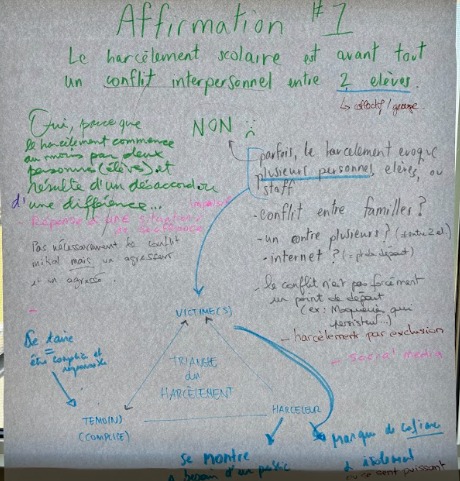 Affirmation #1
Le harcèlement scolaire est avant tout
un conflit interpersonnel entre 2 élèves.
↳ collectif/groupe
Oui, parce que
le harcèlement commence
au moins par deux
personnes (élève) et
résulte d'un désaccord ou
d'une différence...
Réponse à une situation
de souffrance
Pas nécessairement le conflit
initial mais un agresseur
et un agressé.
NON :(
parfois, le harcelement evoque
plusieurs personnel, elèves, ou
staff
- conflit entre familles?
- un contre plusieurs?
- internet?
- le conflit n'est pas forcément
un point de départ
(ex: Moqueries qui
persistent...)
- harcèlement par exclusion
- social media
VICTIME(S)
TRIANGLE
du
HARCÈLEMENT
TEMOIN(S)
(COMPLICE)
HARCELEUR
Se taire
=
être complice et
responsable
se montre
a besoin d'un public
Manque de
d'isolement
se sent puissant